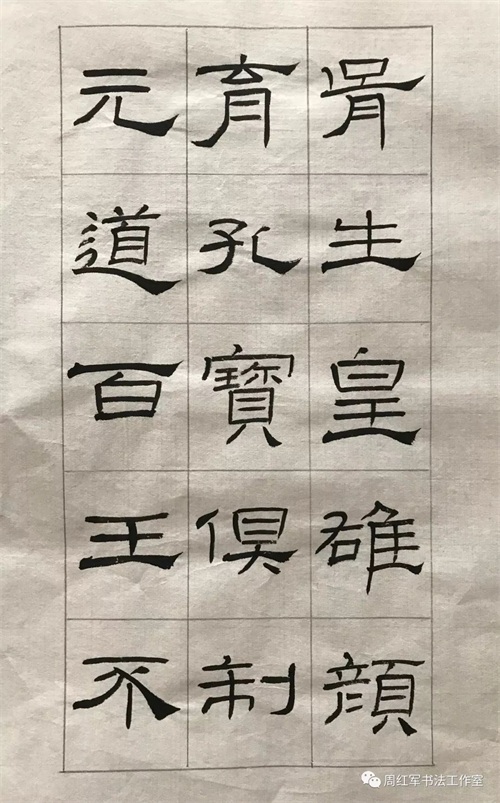 胥生皇雄顔
育孔寶俱制
元道百王不
周红军书法工作室